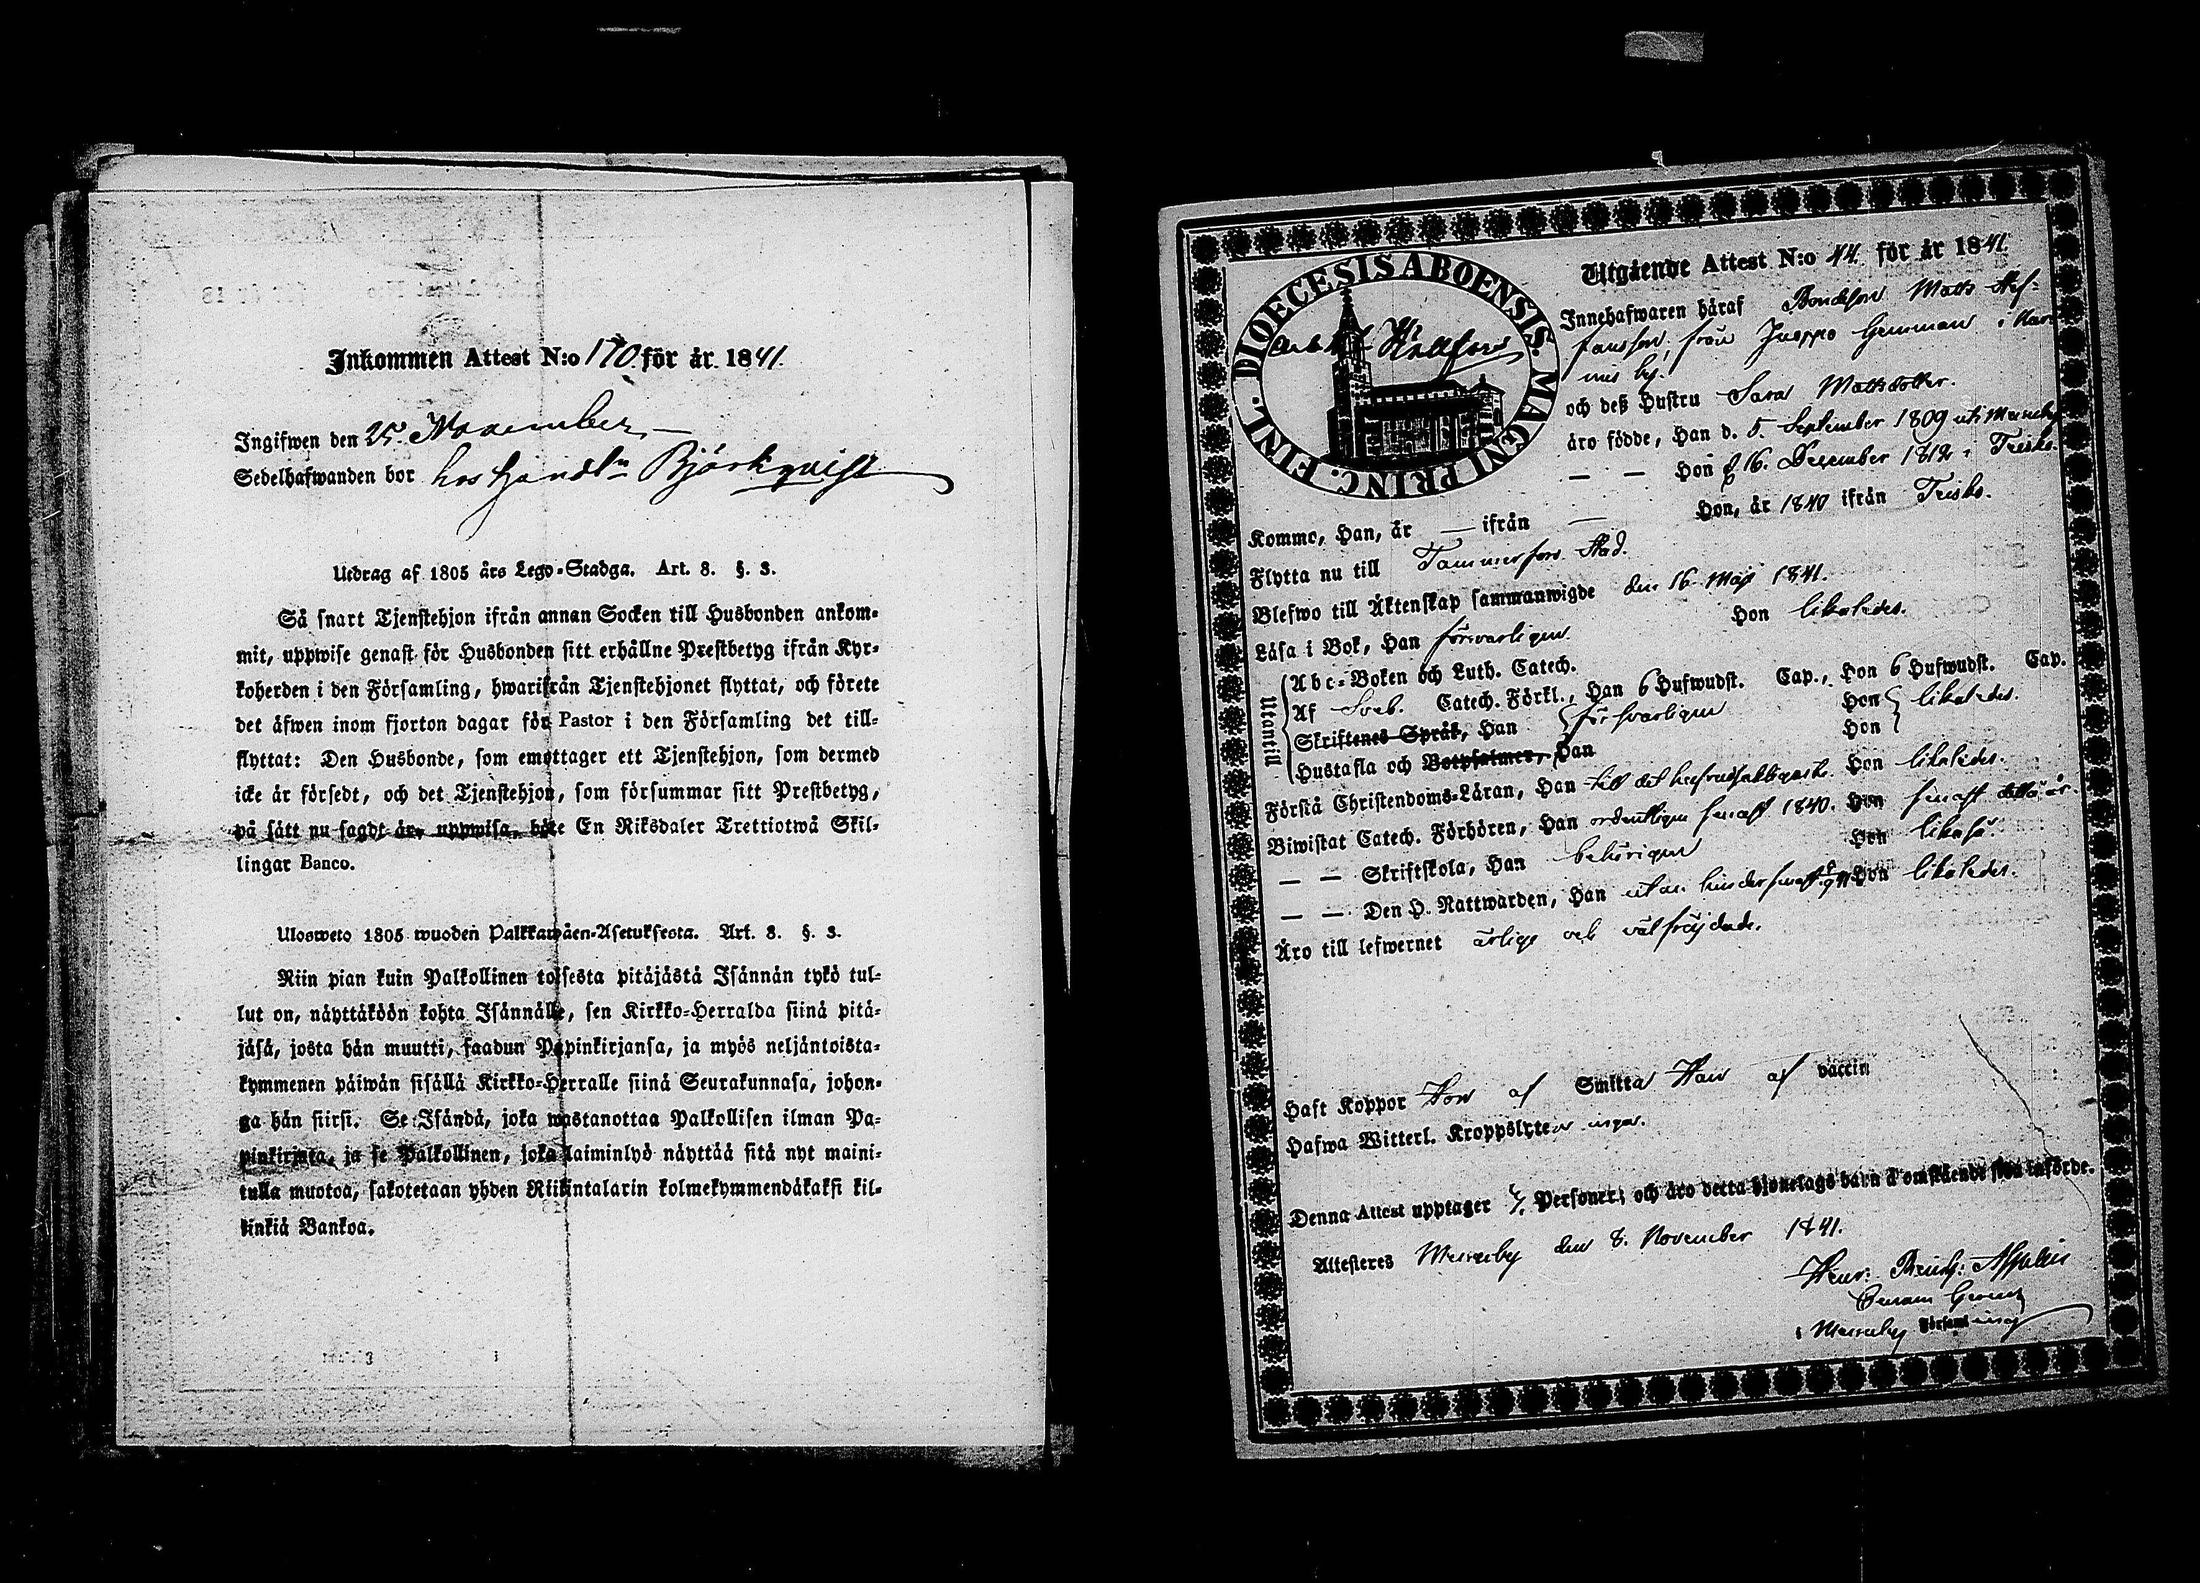 Inkommen Attest N:o 170 för år 1841.
Ingifwen den 25. November
Sedelhafwanden bor hos handl:n Björkqvist
Utdrag af 1805 års Lego-Stadga. Art. 8. §. 3.
Så snart Tjenstehjon ifrån annan Socken till Husbonden ankom-
mit, uppwise genast för Husbonden sitt erhållne Prestbetyg ifrån Kyr-
koherden i den Församling, hwarifrån Tjenstehjonet flyttat, och förete
det äfwen inom fjorton dagar för Pastor i den Församling det till-
flyttat: Den Husbonde, som emottager ett Tjenstehjon, som dermed
icke är försedt, och det Tjenstehjon, som försummar sitt Prestbetyg,
på sätt nu sagdt är, uppwisa, böte En Riksdaler Trettiotwå Skil-
lingar Banco.
Ulosweto 1805 wuoden Palkkawäen-Asetuksesta. Art. 8. §. 3.
Niin pian kuin Palkollinen toisesta pitäjästä Isännän tykö tul-
lut on, näyttäköön kohta Isännälle, sen Kirkko-Herralda siinä pitä-
jäsä, josta hän muutti, saadun Papinkirjansa, ja myös neljäntoista-
kymmenen päiwän sisällä Kirkko-Herralle siinä Seurakunnasa, johon-
ga hän siirsi. Se Isändä, joka wastanottaa Palkollisen ilman Pa-
pinkirjata, ja se Palkollinen, joka laiminlyö näyttää sitä nyt maini-
tulla muotoa, sakotetaan yhden Riikintalarin kolmekymmendäkaksi kil-
linkiä Bankoa.
DIOECESIS ABOENSIS. MAGNI PRINC. FINL.
Utgående Attest N:o 44 för år 1841.
Innehafwaren häraf Bondeson Matts Stef-
fansson, från Juoppo Gemman i
by.
och deß Hustru Sara Mattsdotter.
äro födde, Han d. 5. September 1809 uti Messuby
— — Hon d 16. December 1812 i Teisko.
Kommo, Han, år — ifrån — Hon, år 1840 ifrån Teisko.
Flytta nu till Tammerfors Stad.
Blefwo till Äktenskap sammanwigde den 16 Maji 1841.
Läsa i Bok, Han försvarligen Hon likaledes.
Utantill
Abc-Boken och Luth. Catech.
Af Sveb. Catech. Förkl., Han 6 Hufwudst. Cap., Hon 6 Hufwudst. Cap.
Skriftenes Språk, Han försvarligen Hon likaledes.
Hustafla och Botpsalmer, Han Hon
Förstå Christendoms-Läran, Han till det hufvudsakligaste Hon likaledes.
Biwistat Catech. Förhören, Han ordentligen senast 1840. Hon senast detta år.
— — Skriftskola, Han behörigen Hon likaså.
— — Den H. Nattwarden, Han utan hinder senast Hon likaledes.
Äro till lefwernet ärlige och välfräjdade.
Haft Koppor Hon af Smitta Han af vaccin
Hafwa Witterl. Kroppslyten inga.
Denna Attest upptager Personer; och äro detta hjonelags barn å omstående sida införde.
Attesteres Messuby den 8. November 1841.
Henr:
i Messuby Församling